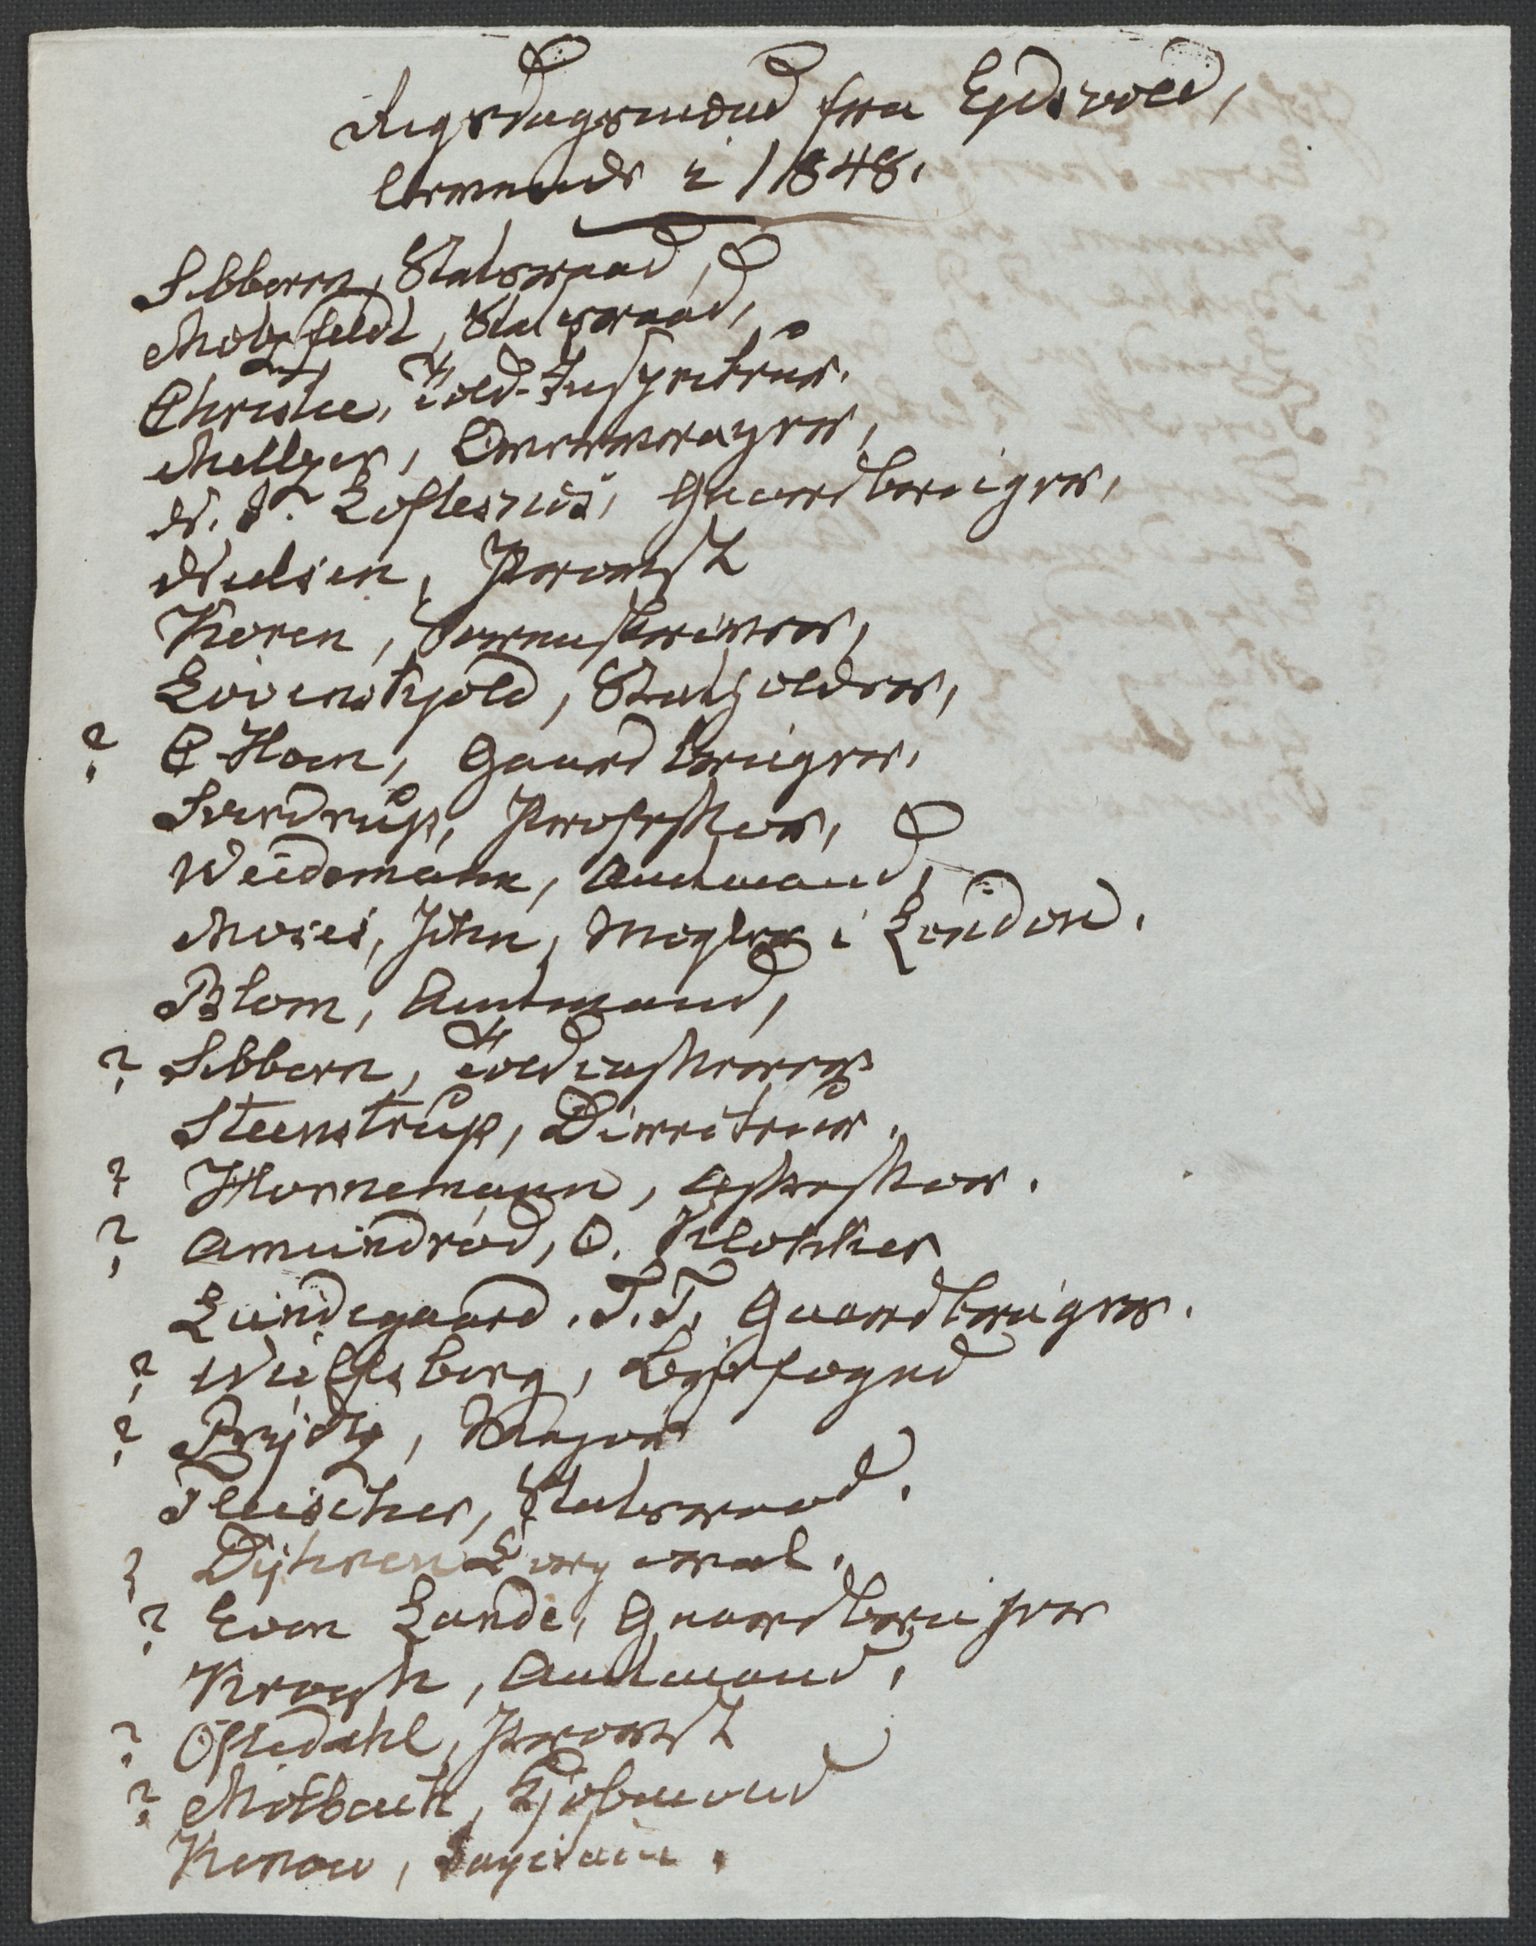 Rigsdagsmænd fra Eidsvold,
levende i 1848.
Sibbern, Statsraad,
Motzfeldt, Statsraad,
Christie, Told-Inspecteur.
Meltzer,
N. J. Loftesnes, Gaardbruger,
Nielsen, Provst
Koren, Sorenskriver,
Lövenskjold, Statholder,
? C Hoen, Gaardbruger.
Sverdrup, Professor,
Weidemann, Amtmand,
Moses, John, Mægler i London.
Blom, Amtmand,
? Sibbern, Toldkasserer
Steenstrup, Directeur.
? Hornemann, Assessor.
? Amundröd, O. Klokker
Lundegaard. T. T. Gaardbruger.
? Wulfsberg, Byfoged
? Prydtz, Major
Fleischer, Statsraad.
? Dyhren
? Even Lande, Gaardbruger
Krogh, Amtmand,
? Oftedahl, Provst
? Motbach, Kjøbmand
Konow, Capitain.